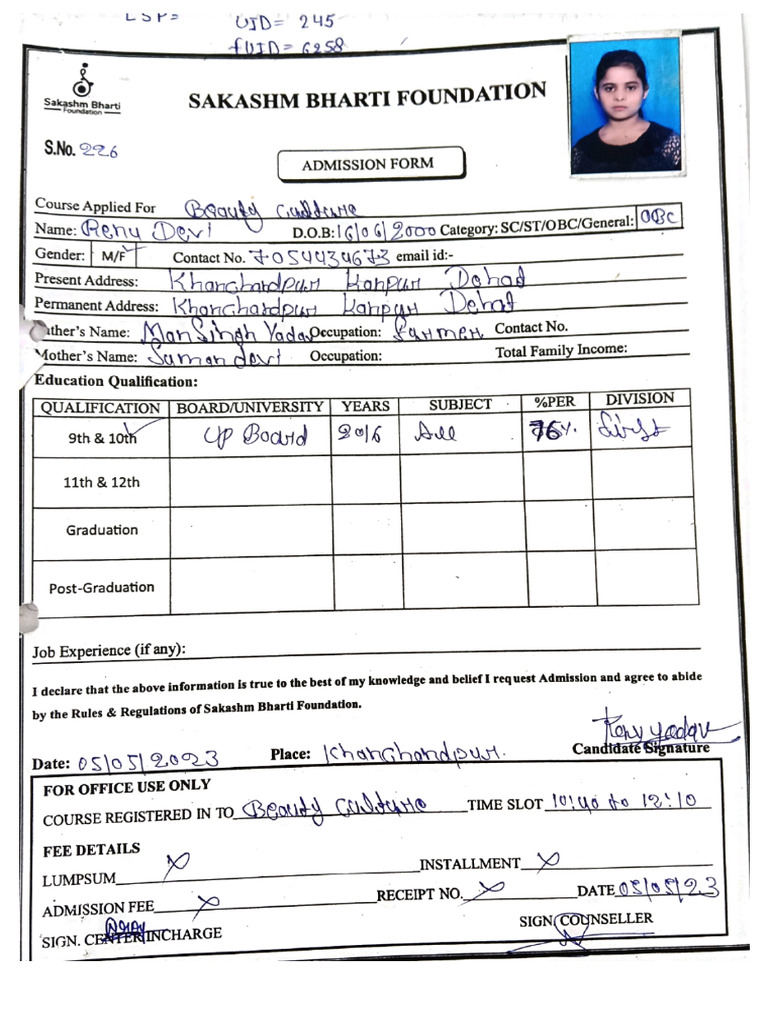 LSP=
UID= 245
fUID= 6258
Sakashm Bharti
Foundation
SAKASHM BHARTI FOUNDATION
S.No. 226
ADMISSION FORM
Course Applied For Beauty Culture
Name: Renu Devi D.O.B: 16/06/2000 Category: SC/ST/OBC/General: OBC
Gender: M/F Contact No. 7054434673 email id:-
Present Address: Khanchardpur Kanpur Dehat
Permanent Address: Khanchardpur Kanpur Dehat
ather's Name: Man Singh Yadav Occupation: Farmer Contact No.
Mother's Name: Suman devi Occupation: Total Family Income:
Education Qualification:
QUALIFICATION BOARD/UNIVERSITY YEARS SUBJECT %PER DIVISION
9th & 10th UP Board 2016 All 76%. First
11th & 12th
Graduation
Post-Graduation
Job Experience (if any):
I declare that the above information is true to the best of my knowledge and belief I request Admission and agree to abide
by the Rules & Regulations of Sakashm Bharti Foundation.
Renu yadav
Date: 05/05/2023 Place: Khanchandpur. Candidate Signature
FOR OFFICE USE ONLY
COURSE REGISTERED IN TO Beauty Culture TIME SLOT 10:40 to 12:10
FEE DETAILS
LUMPSUM X INSTALLMENT X
ADMISSION FEE X RECEIPT NO. X DATE 05/05/23
SIGN. CENTER INCHARGE SIGN COUNSELLER